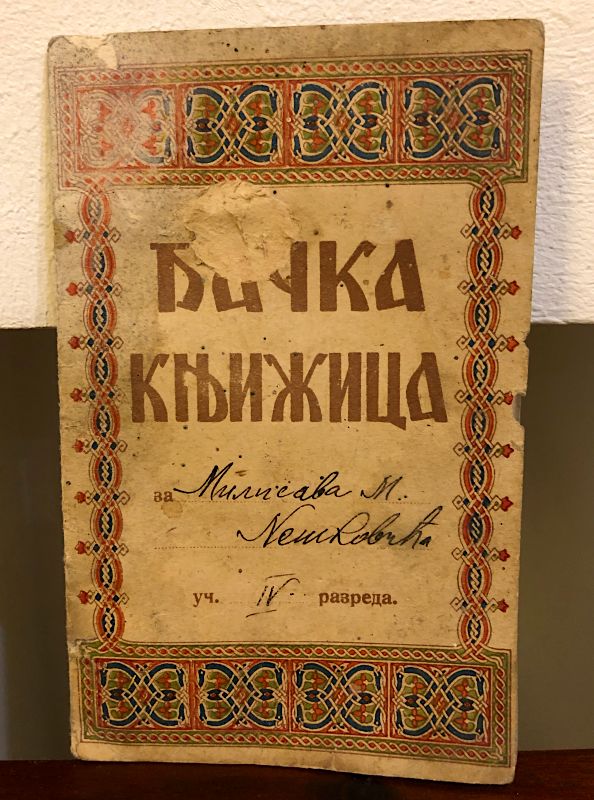 ЂАЧКА
КЊИЖИЦА
за Милисава М.
Нешковића
уч. IV. разреда.